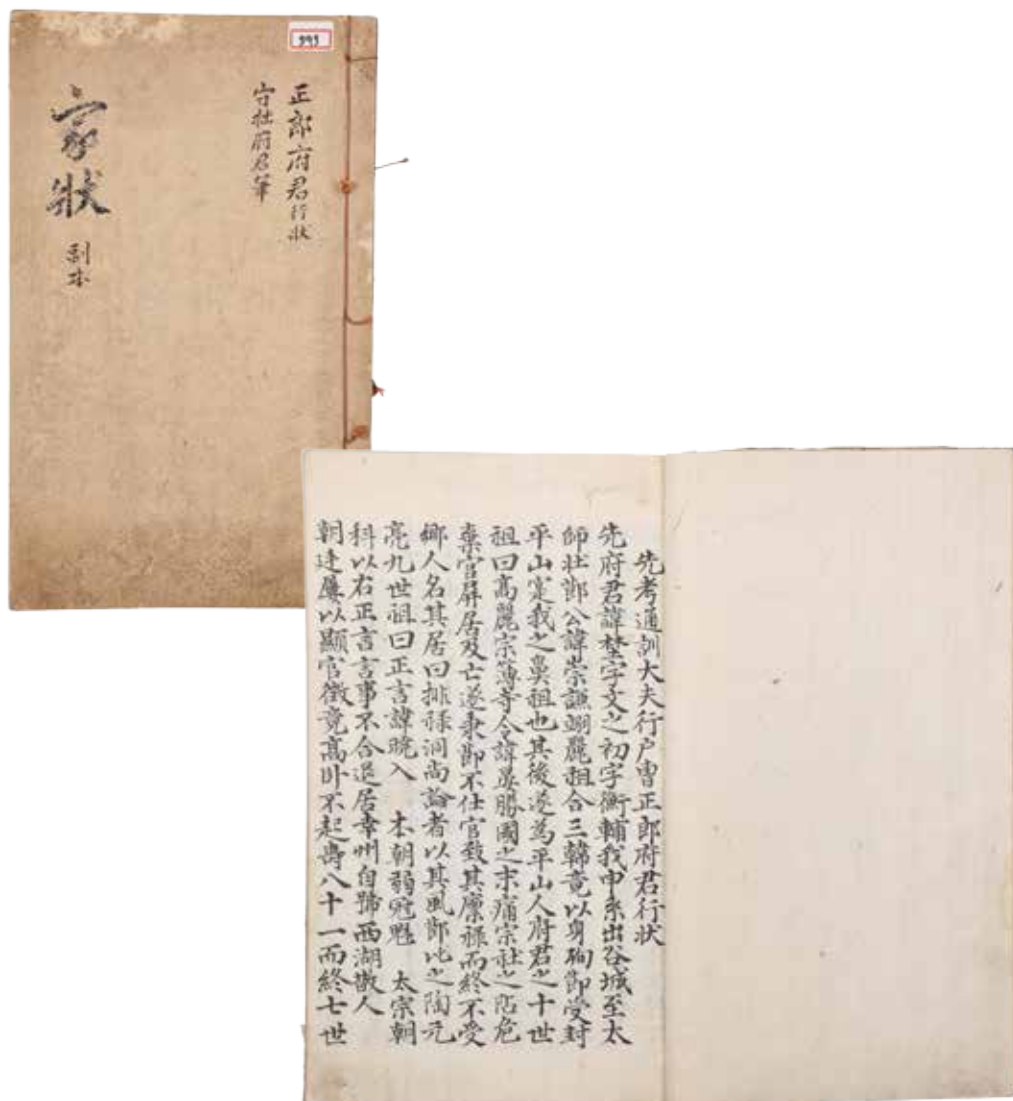 正郎府君行狀
守拙府君筆
家狀 副本
先考通訓大夫行戶曺正郎府君行狀
先府君諱埜字文之初字衡輔我申系出谷城至太
師壯節公諱崇謙翊麗祖合三韓竟以身殉節受封
平山寔我之鼻祖也其後遂爲平山人府君之十世
祖曰高麗宗簿寺令諱晏勝國之末痛宗社之阽危
棄官屛居及亡遂秉節不仕官致其廩祿而終不受
鄕人名其居曰排祿洞尙論者以其風節比之陶元
亮九世祖曰正言諱曉入 本朝弱冠魁 太宗朝
科以右正言言事不合退居幸州自號西湖散人
朝廷屢以顯官徵竟高卧不起壽八十一而終七世